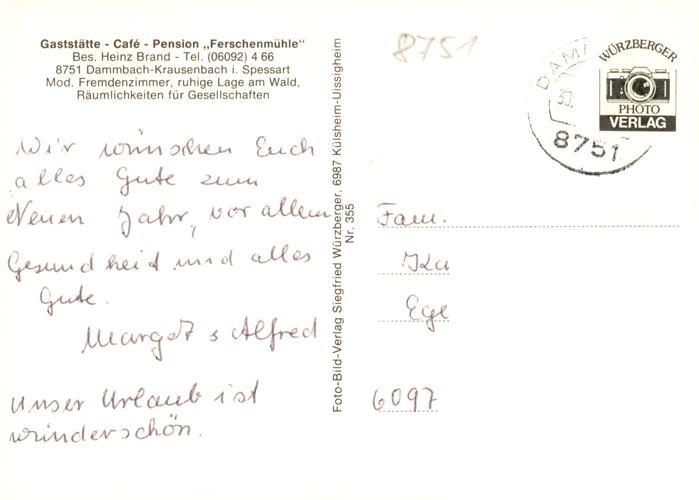 Gaststätte - Café - Pension „Ferschenmühle"
Bes. Heinz Brand - Tel. (06092) 4 66
8751 Dammbach-Krausenbach i. Spessart
Mod. Fremdenzimmer, ruhige Lage am Wald,
Räumlichkeiten für Gesellschaften
Wir wünschen Euch
alles Gute zum
Neuen Jahr, vor allem
Gesundheit und alles
Gute.
Margot & Alfred
Unser Urlaub ist
wunderschön.
Foto-Bild-Verlag Siegfried Würzberger, 6987 Külsheim-Uissigheim
Nr. 355
8751
DAM
30.
8751
WÜRZBERGER
PHOTO
VERLAG
Fam.
Ege
6097